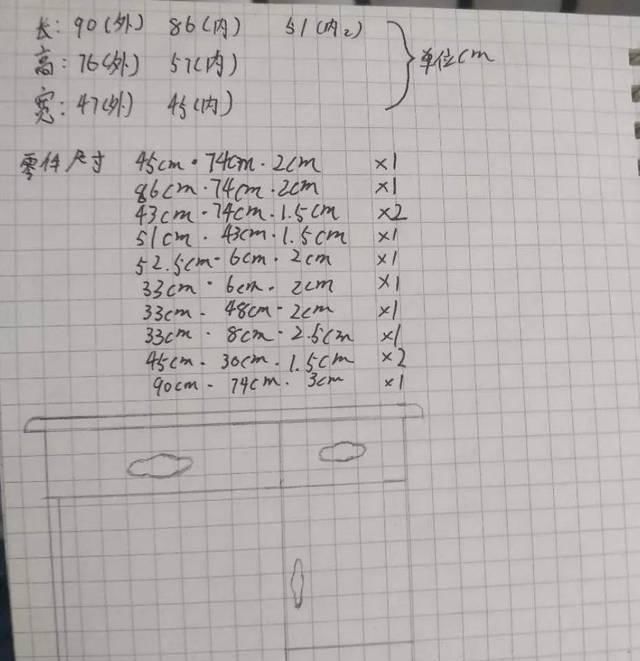 长: 90(外) 86(内) 51(内2)
高: 76(外) 57(内)
宽: 47(外) 45(内)
单位cm
零件尺寸 45cm·74cm·2cm ×1
86cm·74cm·2cm ×1
43cm·74cm·1.5cm ×2
51cm·43cm·1.5cm ×1
52.5cm·6cm·2cm ×1
33cm·6cm·2cm ×1
33cm·48cm·2cm ×1
33cm·8cm·2.5cm ×1
45cm·30cm·1.5cm ×2
90cm·74cm·3cm ×1